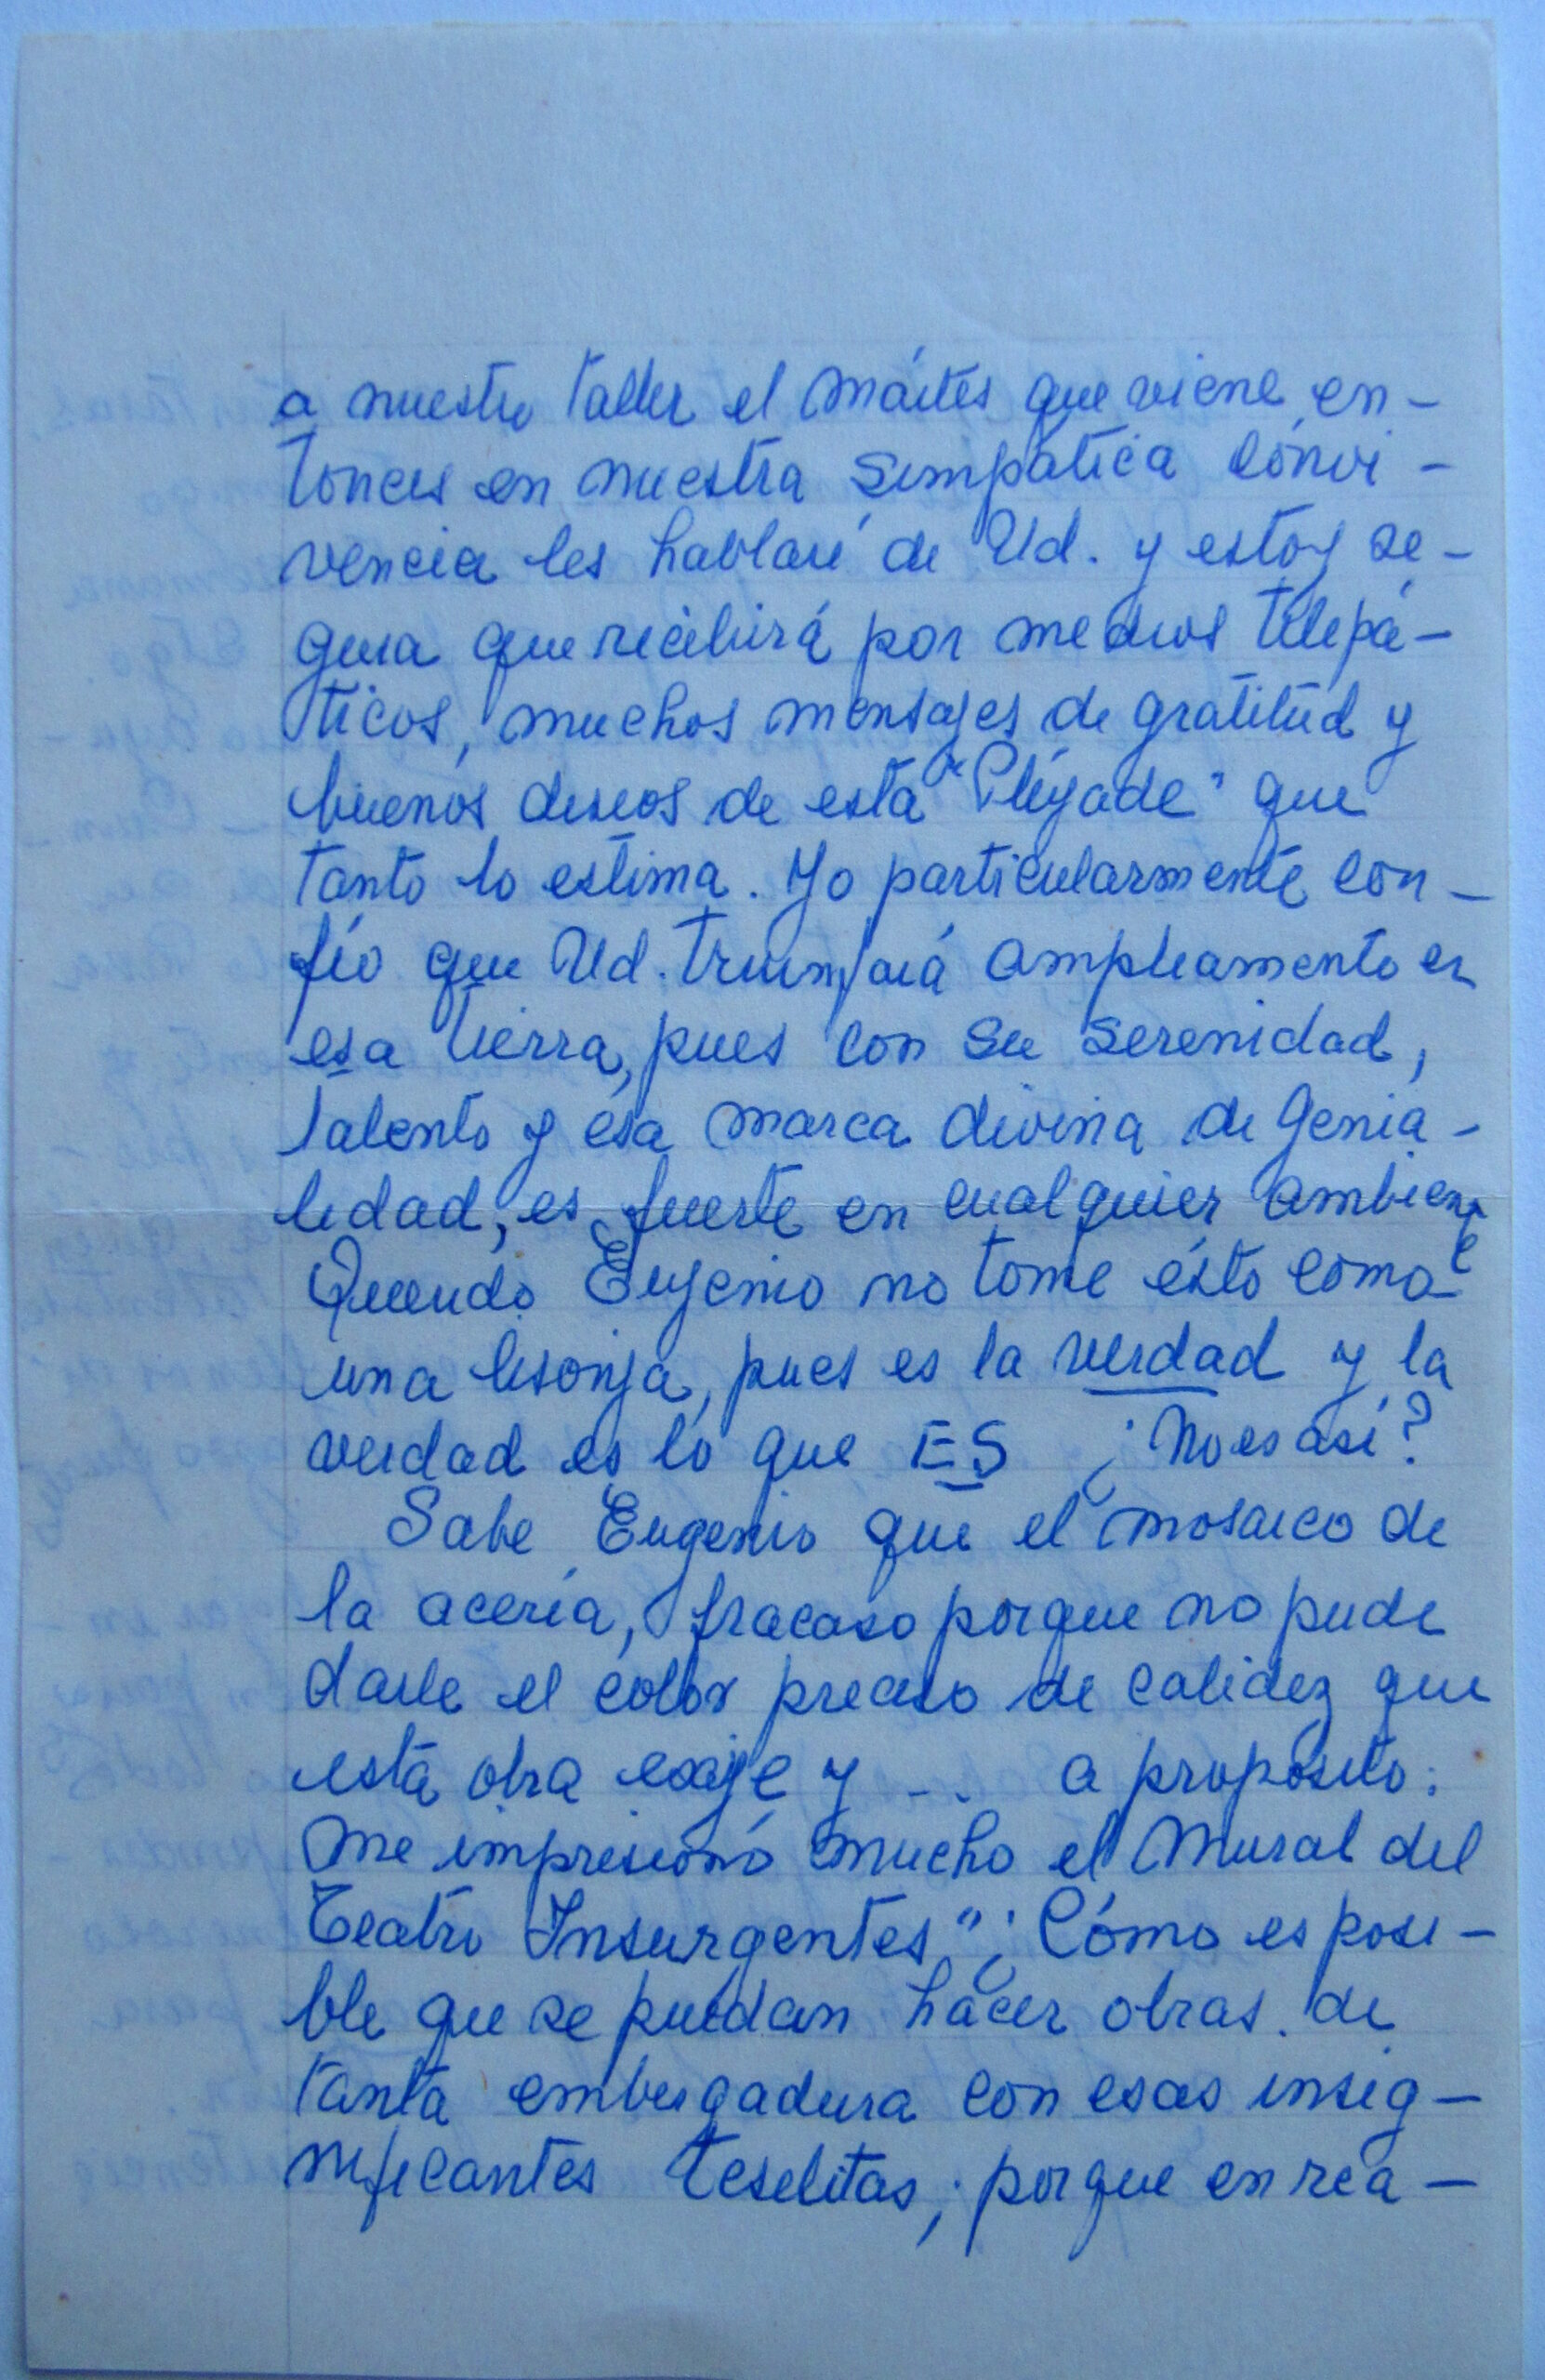 a nuestro taller el mártes que viene en-
tonces en nuestra simpática cónvi-
vencia les hablaré de Ud. y estoy se-
gura que recibirá por medios telepá-
ticos, muchos mensajes de gratitud y
buenos deseos de esta "Pléyade" que
tanto lo estima. Yo particularmente con-
fío que Ud. triunfará ampliamente en
esa tierra, pues con su serenidad,
talento y ésa marca divina de genia-
lidad, es fuerte en cualquier ambiente
Querido Eugenio no tome ésto como
una lisonja, pues es la verdad y la
verdad es lo que ES ¿No es así?
Sabe Eugenio que el mosaico de
la acería, fracaso porque no pude
darle el color preciso de calidez que
esta obra exije y ... a propósito:
me impresionó mucho el Mural del
Teatro Insurgentes" ¿Cómo es posi-
ble que se puedan hacer obras de
tanta embergadura con esas insig-
nificantes teselitas; porque en rea-